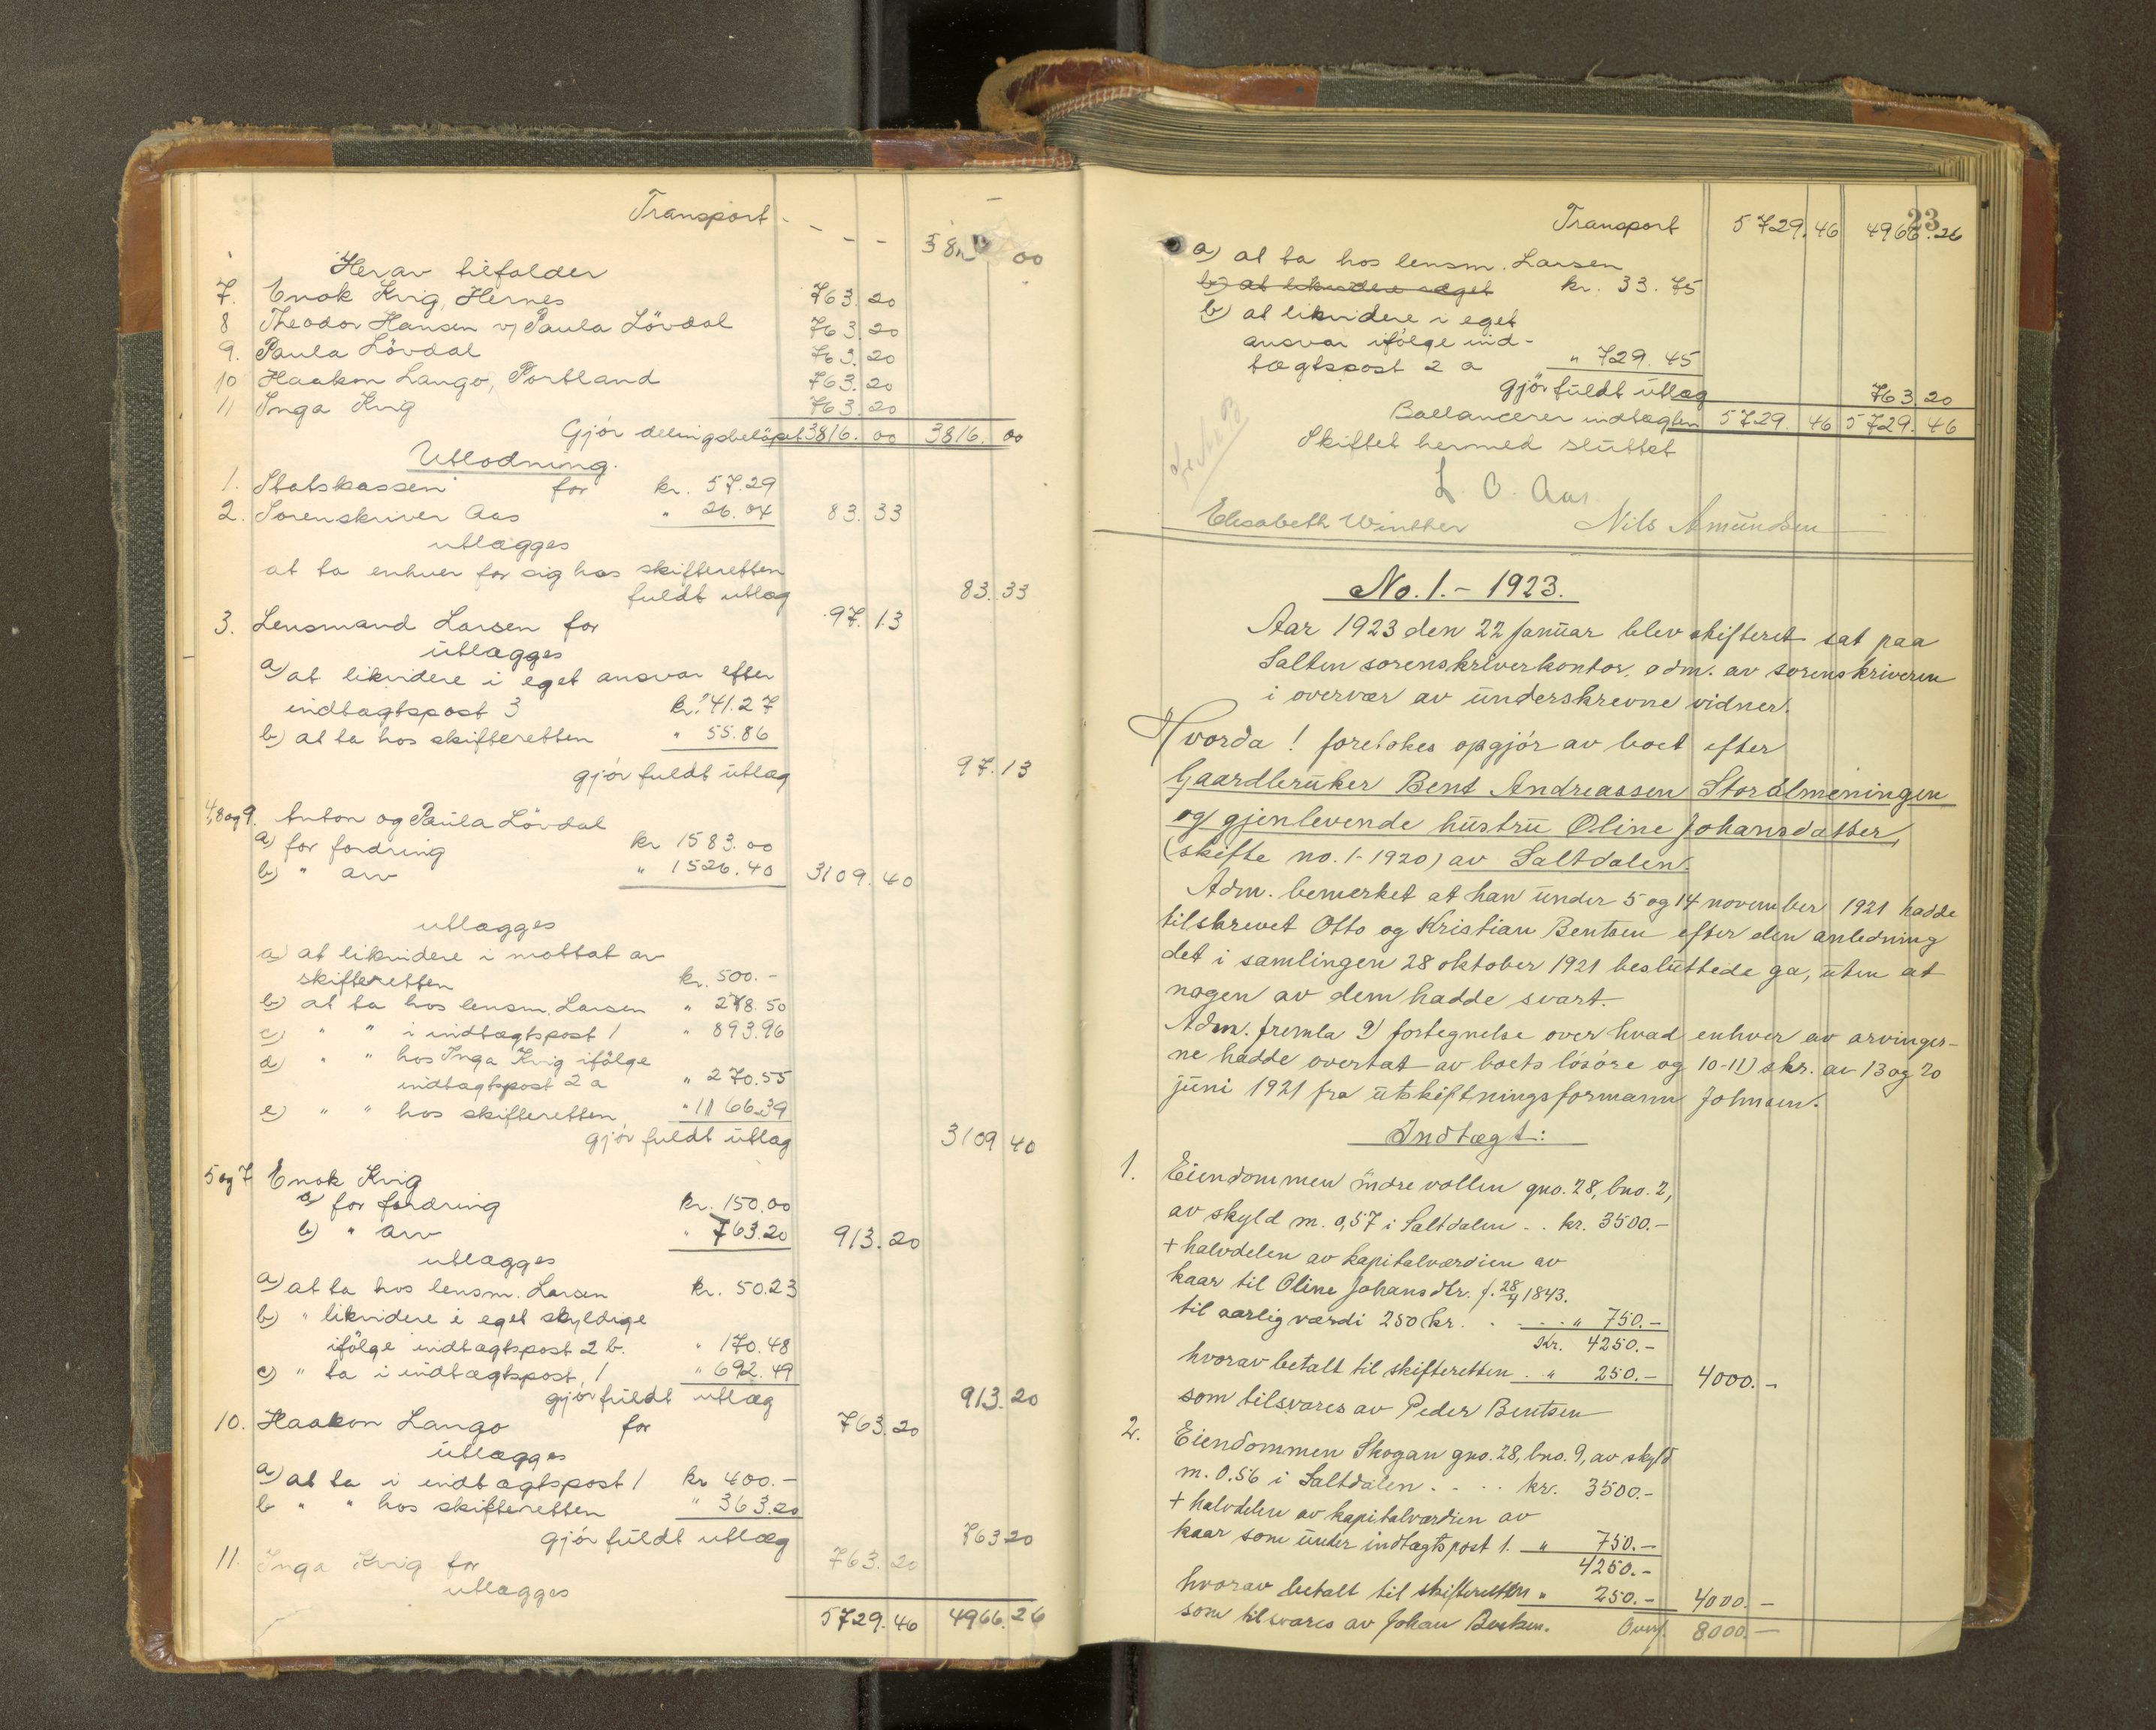 Transport - - - - 38 00
Herav tilfalder
7. Enok Kvig, Hernes 763.20
8 Theodor Hansen v/ Paula Lövdal 763.20
9. Paula Lövdal 763.20
10 Haakon Lango, Portland 763.20
11 Inga Kvig 763.20
Gjör delingsbelöpet 3816.00 3816.00
Utlodning.
1. Statskassen for kr. 57.29
2. Sorenskriver Aas " 26.04 83.33
utlægges
at ta enhver for sig hos skifteretten
fuldt utlæg 83.33
3. Lensmand Larsen for 97.13
utlægges
a) at likvidere i eget ansvar efter
indtægtspost 3 kr. 41.27
b) at ta hos skifteretten " 55.86
gjör fuldt utlæg 97.13
4, 8 og 9. Anton og Paula Lövdal
a) for fordring kr 1583.00
b) " arv " 1526.40 3109.40
utlægges
a) at likvidere i mottat av
skifteretten kr. 500.-
b) at ta hos lensm. Larsen " 278.50
c) " " i indtægtspost 1 " 893.96
d) " " hos Inga Kvig ifölge
indtægtspost 2 a " 270.55
e) " " hos skifteretten " 1166.39
gjör fuldt utlæg 3109 40
5 og 7 Enok Kvig
a) for fordring kr. 150.00
b) " arv " 763.20 913.20
utlægges
a) at ta hos lensm. Larsen kr. 50.23
b) " likvidere i eget skyldige
ifölge indtægtspost 2 b. " 170.48
c) " ta i indtægtspost 1 " 692.49
gjör fuldt utlæg 913.20
10. Haakon Lango for 763.20
utlægges
a) at ta i indtægtspost 1 kr 400.-
b " " hos skifteretten " 363.20
gjör fuldt utlæg 763 20
11. Inga Kvig for 763.20
utlægges
5729.46 4966.26
23
Transport 5729.46 4966.26
a) at ta hos lensm. Larsen
b) at likvidere i eget kr. 33.75
b) at likvidere i eget
ansvar ifölge ind-
tægtspost 2 a " 729.45
gjör fuldt utlæg 763.20
Ballancerer indtægten 5729.46 5729.46
Skiftet hermed sluttet
L. O. Aas
Elisabeth Winther Nils Amundsen
No. 1. - 1923.
Aar 1923 den 22 januar blev skifteret sat paa
Salten sorenskriverkontor, adm. av sorenskriveren
i overvær av underskrevne vidner.
Hvorda! foretokes opgjör av boet efter
Gaardbruker Bent Andreassen Storalmeningen
og gjenlevende hustru Oline Johansdatter,
(skifte no. 1-1920) av Saltdalen.
Adm. bemerket at han under 5 og 14 november 1921 hadde
tilskrevet Otto og Kristian Bentsen efter den anledning
det i samlingen 28 oktober 1921 besluttede ga, uten at
nogen av dem hadde svart.
Adm. fremla 9) fortegnelse over hvad enhver av arvinger-
ne hadde overtat av boets lösöre og 10-11) skr. av 13 og 20
juni 1921 fra utskiftningsformann Johnsen.
Indtægt:
1. Eiendommen Indrevollen gno. 28, bno. 2,
av skyld m. 0,57 i Saltdalen . . kr. 3500.-
+ halvdelen av kapitalværdien av
kaar til Oline Johansdtr. f. 28/9 1843.
til aarlig værdi 250 kr. . . . . " 750.-
Kr. 4250.-
hvorav betalt til skifteretten . . " 250.- 4000.-
som tilsvares av Peder Bentsen
2. Eiendommen Skogan gno. 28, bno. 9, av skyld
m. 0.56 i Saltdalen . . . . kr. 3500.-
+ halvdelen av kapitalværdien av
kaar som under indtægtspost 1. " 750.-
4250.-
hvorav betalt til skifteretten " 250.- 4000.-
som tilsvares av Johan Bentsen. Overf. 8000.-